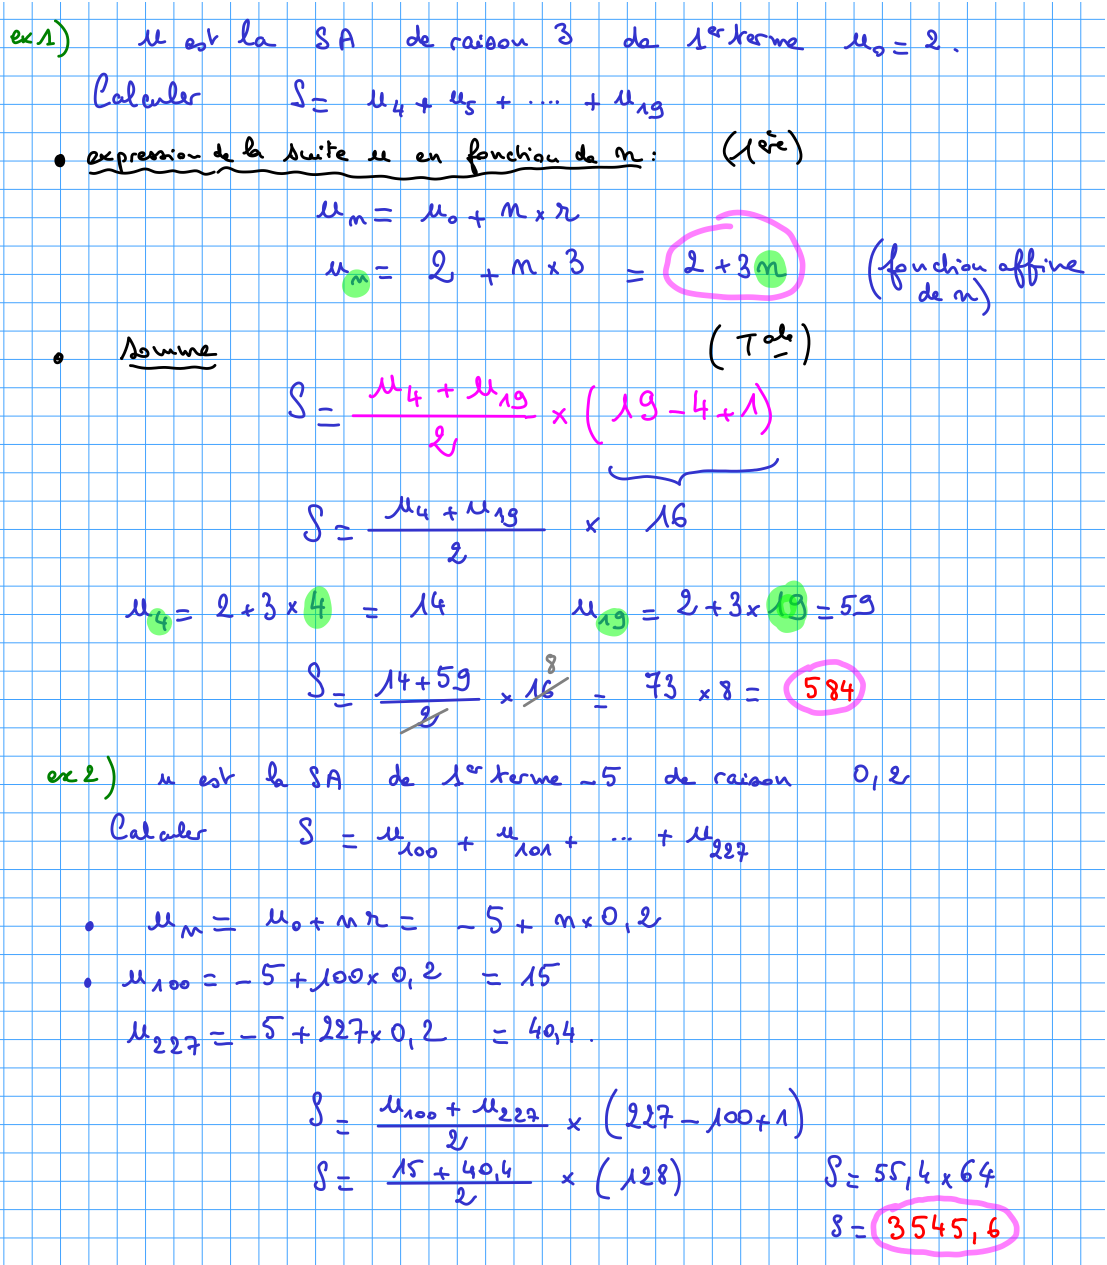 ex 1) u est la SA de raison 3 de 1er terme u₀ = 2.
Calculer S = u₄ + u₅ + .... + u₁₉
• expression de la suite u en fonction de n : (1ère)
uₙ = u₀ + n × r
uₙ = 2 + n × 3 = 2 + 3n (fonction affine
de n)
• Somme (Tale)
S = (u₄ + u₁₉)/2 × (19 - 4 + 1)
S = (u₄ + u₁₉)/2 × 16
u₄ = 2 + 3 × 4 = 14 u₁₉ = 2 + 3 × 19 = 59
S = (14 + 59)/2 × 16 8 = 73 × 8 = 584
ex 2) u est la SA de 1er terme -5 de raison 0,2
Calculer S = u₁₀₀ + u₁₀₁ + ... + u₂₂₇
• uₙ = u₀ + nr = -5 + n × 0,2
• u₁₀₀ = -5 + 100 × 0,2 = 15
u₂₂₇ = -5 + 227 × 0,2 = 40,4.
S = (u₁₀₀ + u₂₂₇)/2 × (227 - 100 + 1)
S = (15 + 40,4)/2 × (128) S = 55,4 × 64
S = 3545,6